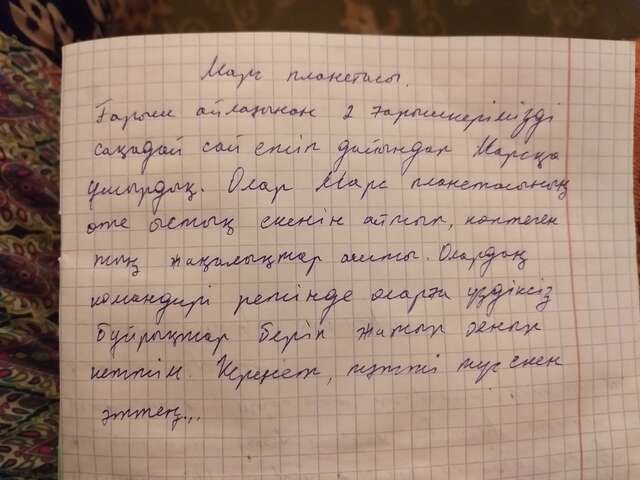 Марс планетасы.
Ғарыш айлағынан 2 ғарышкерімізді
сақадай сай етіп дайындап Марсқа
ұшырдық. Олар Марс планетасының
өте ыстық екенін айтып, көптеген
тың жаңалықтар ашты. Олардың
командирі ретінде оларға үздіксіз
бұйрықтар беріп жатып оянып
кеттім. Керемет, күтті түс екен
әттең...